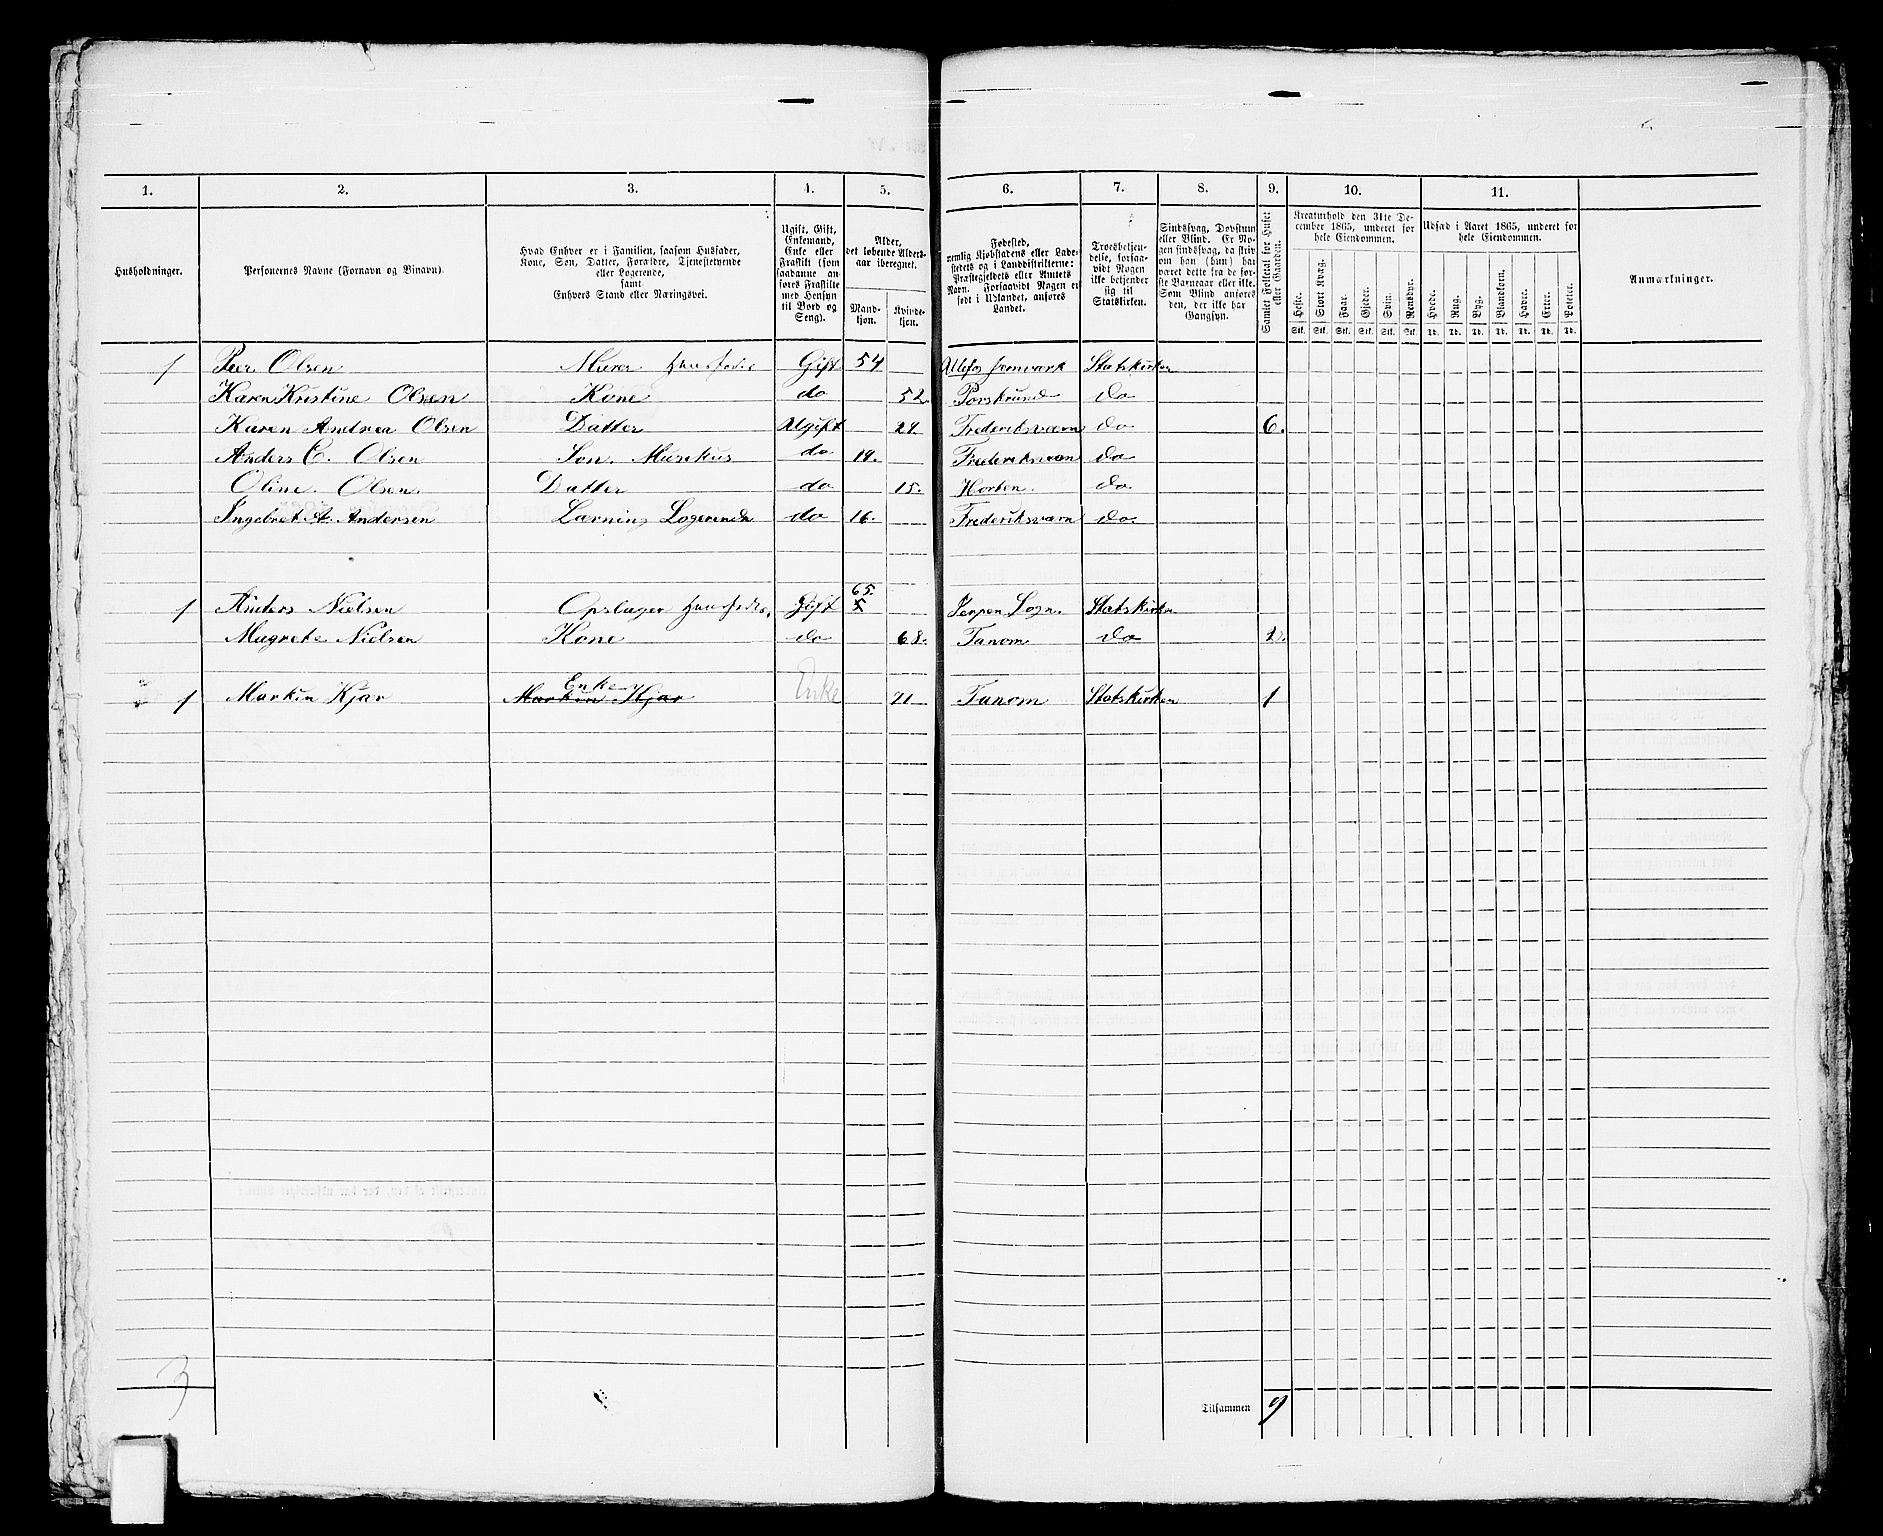 1. 2. 3. 4. 5. 6. 7. 8. 9. 10. 11.
Husholdninger.
Personernes Navne (Fornavn og Binavn).
Hvad Enhver er i Familien, saasom Husfader,
Kone, Søn, Datter, Forældre, Tjenestetyende
eller Logerende,
samt
Enhvers Stand eller Næringsvei.
Ugift, Gift,
Enkemand,
Enke eller
Fraskilt (som
saadanne an-
føres Fraskilte
med Hensyn
til Bord og
Seng).
Alder,
det løbende Alders-
aar iberegnet.
Mand-
kjøn.
Kvinde-
kjøn.
Fødested,
nemlig Kjøbstadens eller Lade-
stedets og i Landdistrikterne:
Præstegjeldets eller Amtets
Navn. Forsaavidt Nogen er
født i Udlandet, anføres
Landet.
Troesbekjen-
delse, forsaa-
vidt Nogen
ikke bekjender
sig til
Statskirken.
Sindssvag, Døvstum
eller Blind. Er No-
gen sindssvag, da skriv
om han (hun) har
været dette fra de før-
ste Barneaar eller ikke.
Som Blind anføres
den, der ikke har
Gangsyn.
Samlet Folketal for Huset
eller Gaarden.
Kreaturhold den 31te De-
cember 1865, underet for
hele Eiendommen.
Heste. Stort Kvæg. Faar. Gjeder. Svin. Rensdyr.
Stk. Stk. Stk. Stk. Stk. Stk.
Udsæd i Aaret 1865, underet for
hele Eiendommen.
Hvede. Rug. Byg. Blandkorn. Havre. Erter. Poteter.
Td. Td. Td. Td. Td. Td. Td.
Anmærkninger.
1 Peer Olsen Murer Huusfader Gift 54 Ulefos Jernværk Statskirken
Karen Kristine Olsen Kone do 52 Porskrund do
Karen Andrea Olsen Datter Ugift 24. Frederiksværn do 6.
Anders C. Olsen Søn. Musikus do 19. Frederiksværn do
Oline Olsen. Datter do 15. Horten do
Ingebret A. Andersen Lærning Logerende do 16. Frederiksværn do.
65.
1 Anders Nielsen Opslager Huusfader Gift Jerpen Sogn. Statskirken
Magrete Nielsen Kone do 68. Tanom do 2.
Enke
1 Markin Kjær Markin Kjær Enke 71 Tanom Statskirken 1
3
Tilsammen 9